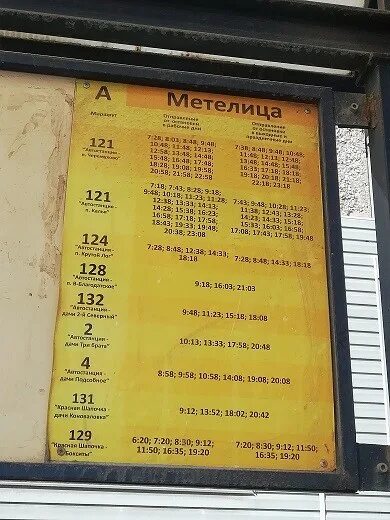 А Метелица
Маршрут
Отправления
от остановки
в рабочие дни
Отправления
от остановки
в выходные и
праздничные дни
121
"Автостанция -
п. Черемухово"
7:28; 8:03; 8:48; 9:48;
10:48; 11:48; 12:13;
12:58; 13:48; 14:48;
15:48; 16:48; 17:48;
18:28; 19:08; 19:58;
20:58; 21:58; 22:58
7:38; 8:48; 9:48; 10:48;
11:48; 12:13; 12:48;
13:48; 14:48; 15:48;
16:33; 17:18; 18:18;
19:18; 20:18; 21:18;
22:18; 23:18
121
"Автостанция -
п. Калья"
7:18; 7:43; 8:28; 9:18;
9:48; 10:18; 11:23; 11:28;
12:38; 13:33; 14:13;
14:28; 15:38; 16:23;
16:58; 17:18; 17:58;
18:43; 19:33; 19:48;
20:38; 23:08
7:43; 9:48; 10:28; 11:23;
11:38; 12:43; 13:28;
14:23; 14:43; 15:18;
15:33; 16:03; 16:58;
17:08; 17:43; 17:58; 19:48
124
"Автостанция -
п. Крутой Лог"
7:28; 8:48; 12:38; 14:33;
18:18
7:28; 8:48; 14:33; 18:18
128
"Автостанция -
п. В-Благодатское"
9:18; 16:03; 21:03
132
"Автостанция -
дачи 2-й Северный"
9:48; 11:23; 15:18; 18:08
2
"Автостанция -
дачи Три брата"
10:13; 13:33; 17:58; 20:48
4
"Автостанция -
дачи Подсобное"
8:58; 9:58; 10:58; 14:08; 19:08; 20:08
131
"Красная Шапочка -
дачи Коноваловка"
9:12; 13:52; 18:02; 20:42
129
"Красная Шапочка -
Бокситы"
6:20; 7:20; 8:30; 9:12;
11:50; 16:35; 19:20
7:20; 8:30; 9:12; 11:50;
16:35; 19:20